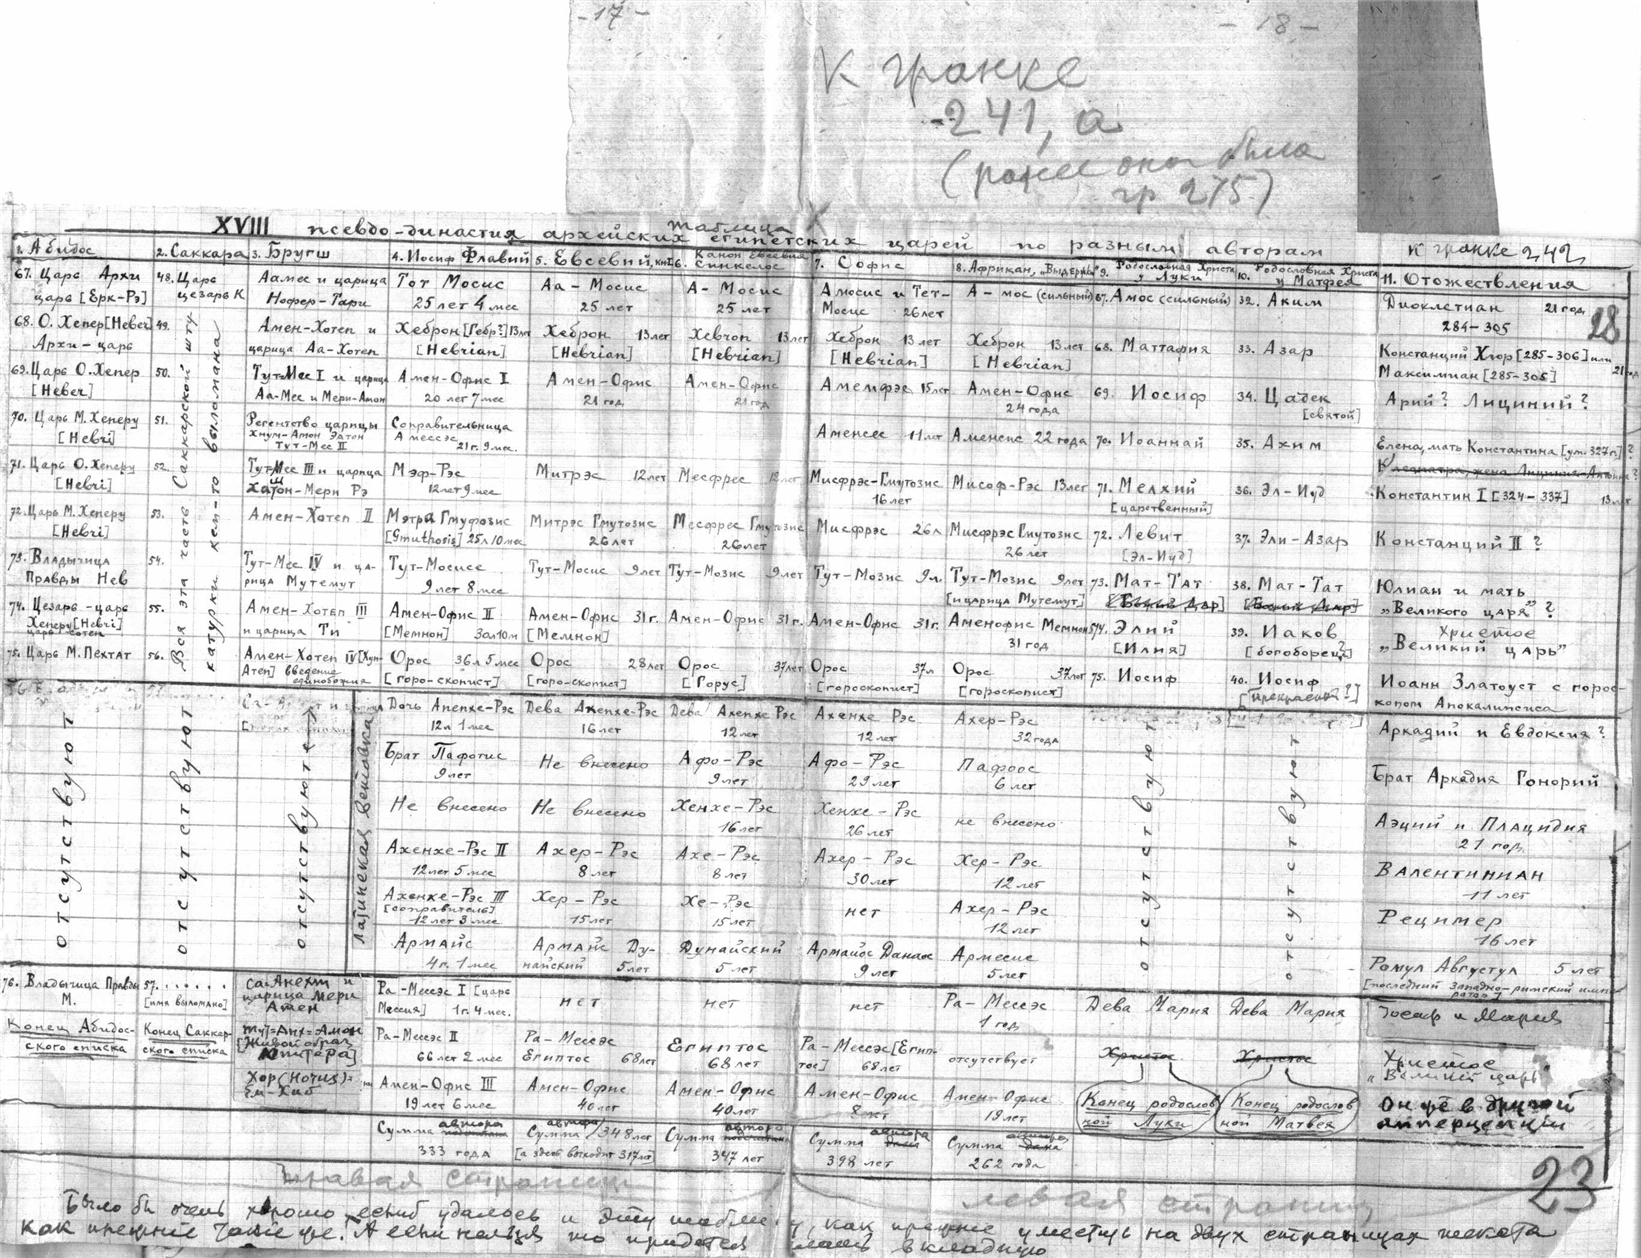 -17-
-18-
К гранке
241, а
(ранее она была
гр 275)
Таблица
XVIII псевдо-династия архейских египетских царей по разным авторам
К гранке 242
1. Абидос
2. Саккара
3. Бругш
4. Иосиф Флавий
5. Евсевий, кн I
6. Канон Евсевия Синкелос
7. Софис
8. Африкан, „Выдержки"
9. Родословная Христа у Луки
10. Родословная Христа у Матфея
11. Отожествления
67. Царь Архи царь [Ерк-Рэ]
48. Царь цезарь К
Аамес и царица Нофер-Тари
Тот Мосис 25 лет 4 мес
Аа-Мосис 25 лет
А-Мосис 25 лет
Амосис и Тет-Мосис 26 лет
А-мос (сильный)
67. Амос (сильный)
32. Аким
Диоклетиан 21 год 284-305
28
68. О. Хепер [Невег] Архи-царь
49.
Амен-Хотеп и царица Аа-Хотеп
Хеброн [Гебр?] 13 лет [Hebrian]
Хеброн 13 лет [Hebrian]
Хеврон 13 лет [Hebrian]
Хеброн 13 лет [Hebrian]
Хеброн 13 лет [Hebrian]
68. Маттафия
33. Азар
Констанций Хлор [285-306] или Максимиан [285-305] 21 год
69. Царь О. Хепер [Невег]
50.
Тут-Мес I и царица Аа-Мес и Мери-Амон
Амен-Офис I 20 лет 7 мес
Амен-Офис 21 год
Амен-Офис 21 год
Амемфэс 15 лет
Амен-Офис 24 года
69. Иосиф
34. Цадек [святой]
Арий? Лициний?
70. Царь М. Хеперу [Невгi]
51.
Регентство царицы Хнум-Амон Тут-Мес II
Соправительница Амессэс 21 г. 9 мес.
Аменсес 11 лет
Аменсис 22 года
70. Иоаннай
35. Ахим
Елена, мать Константина [ум. 327 г.] ?
71. Царь О. Хеперу [Невгi]
52.
Тут-Мес III и царица Хатон-Мери Рэ
Мэф-Рэс 12 лет 9 мес
Митрэс 12 лет
Месфрес 12 лет
Мисфрэс-Гмутозис 16 лет
Мисоф-Рэс 13 лет
71. Мелхий [царственный]
36. Эл-Иуд
Константин I [324-337] 13 лет
72. Царь М. Хеперу [Невгi]
53.
Амен-Хотеп II
Мэтра Гмуфозис [Gmuthosis] 25 л 10 мес
Митрэс Гмутозис 26 лет
Месфрес Гмутозис 26 лет
Мисфрэс 26 л
Мисфрэс Гмутозис 26 лет
72. Левит [Эл-Иуд]
37. Эли-Азар
Констанций II ?
73. Владычица Правды Нев
54.
Тут-Мес IV и царица Мутемут
Тут-Мосис 9 лет 8 мес
Тут-Мосис 9 лет
Тут-Мозис 9 лет
Тут-Мозис 9 л.
Тут-Мозис 9 лет [и царица Мутемут]
73. Мат-Тат
38. Мат-Тат
Юлиан и мать „Великого царя" ?
74. Цезарь-царь Хеперу [Невгi]
55.
Амен-Хотеп III и царица Ти
Амен-Офис II [Мемнон] 30 л 10 м
Амен-Офис 31 г. [Мемнон]
Амен-Офис 31 г.
Амен-Офис 31 г.
Аменофис Мемнон 31 год
74. Элий [Илия]
39. Иаков [богоборец?]
Христос „Великий царь"
75. Царь М. Пехтат
56.
Амен-Хотеп IV [Хун-Атен] введение единобожия
Орос 36 л 5 мес [горо-скопист]
Орос 28 лет [горо-скопист]
Орос 37 лет [Горус]
Орос 37 л [гороскопист]
Орос 37 лет [гороскопист]
75. Иосиф
40. Иосиф [прекрасный?]
Иоанн Златоуст с гороскопом Апокалипсиса
Вся эта часть Саккарской штукатурки кем-то выломана
отсутствуют
отсутствуют
отсутствуют
Латинская ветовка
Дочь Ахенхе-Рэс 12 л 1 мес
Дева Ахенхе-Рэс 16 лет
Дева Ахенхе Рэс 12 лет
Ахенхе Рэс 12 лет
Ахер-Рэс 32 года
отсутствуют
отсутствуют
Аркадий и Евдоксия?
Брат Пафотис 9 лет
Не внесено
Афо-Рэс 9 лет
Афо-Рэс 29 лет
Пафоос 6 лет
Брат Аркадия Гонорий
Не внесено
Не внесено
Хенхе-Рэс 16 лет
Хенхе-Рэс 26 лет
не внесено
Аэций и Плацидия 21 год
Ахенхе-Рэс II 12 лет 5 мес
Ахер-Рэс 8 лет
Ахе-Рэс 8 лет
Ахер-Рэс 30 лет
Хер-Рэс 12 лет
Валентиниан 11 лет
Ахенхе-Рэс III [соправитель] 12 лет 3 мес
Хер-Рэс 15 лет
Хе-Рэс 15 лет
нет
Ахер-Рэс 12 лет
Рецимер 16 лет
Армаис 4 г. 1 мес
Армаис Дунайский 5 лет
Дунайский 5 лет
Армаис Данаос 9 лет
Армесис 5 лет
Ромул Августул 5 лет [последний Западно-римский император]
76. Владычица Правды М.
57. ...... [имя выломано]
Са-Анехт и царица Мери Атен
Ра-Мессэс I [царь Мессия] 1 г. 4 мес.
нет
нет
нет
Ра-Мессэс 1 год
Дева Мария
Дева Мария
Иосиф и Мария
Конец Абидосского списка
Конец Саккарского списка
Тут-Анх-Амон [Живой образ Юпитера]
Ра-Мессэс II 66 лет 2 мес
Ра-Мессэс Египтос 68 лет
Египтос 68 лет
Ра-Мессэс [Египтос] 68 лет
отсутствует
Христос
Христос
Христос „Великий царь"
Хор (Ночиз) Ем-Хиб
Амен-Офис III 19 лет 6 мес
Амен-Офис 40 лет
Амен-Офис 40 лет
Амен-Офис 8 лет
Амен-Офис 19 лет
Конец родословной Луки
Конец родословной Матвея
Он же в другой апперцепции
Сумма автора 333 года
Сумма автора 348 лет [а здесь выходит 317 лет]
Сумма автора 347 лет
Сумма автора 398 лет
Сумма автора 262 года
23
правая страница
левая страница
Было бы очень хорошо если б удалось и эту таблицу, как прежние уместить на двух страницах текста
как прежние такие же. А если нельзя то придется дать вкладную